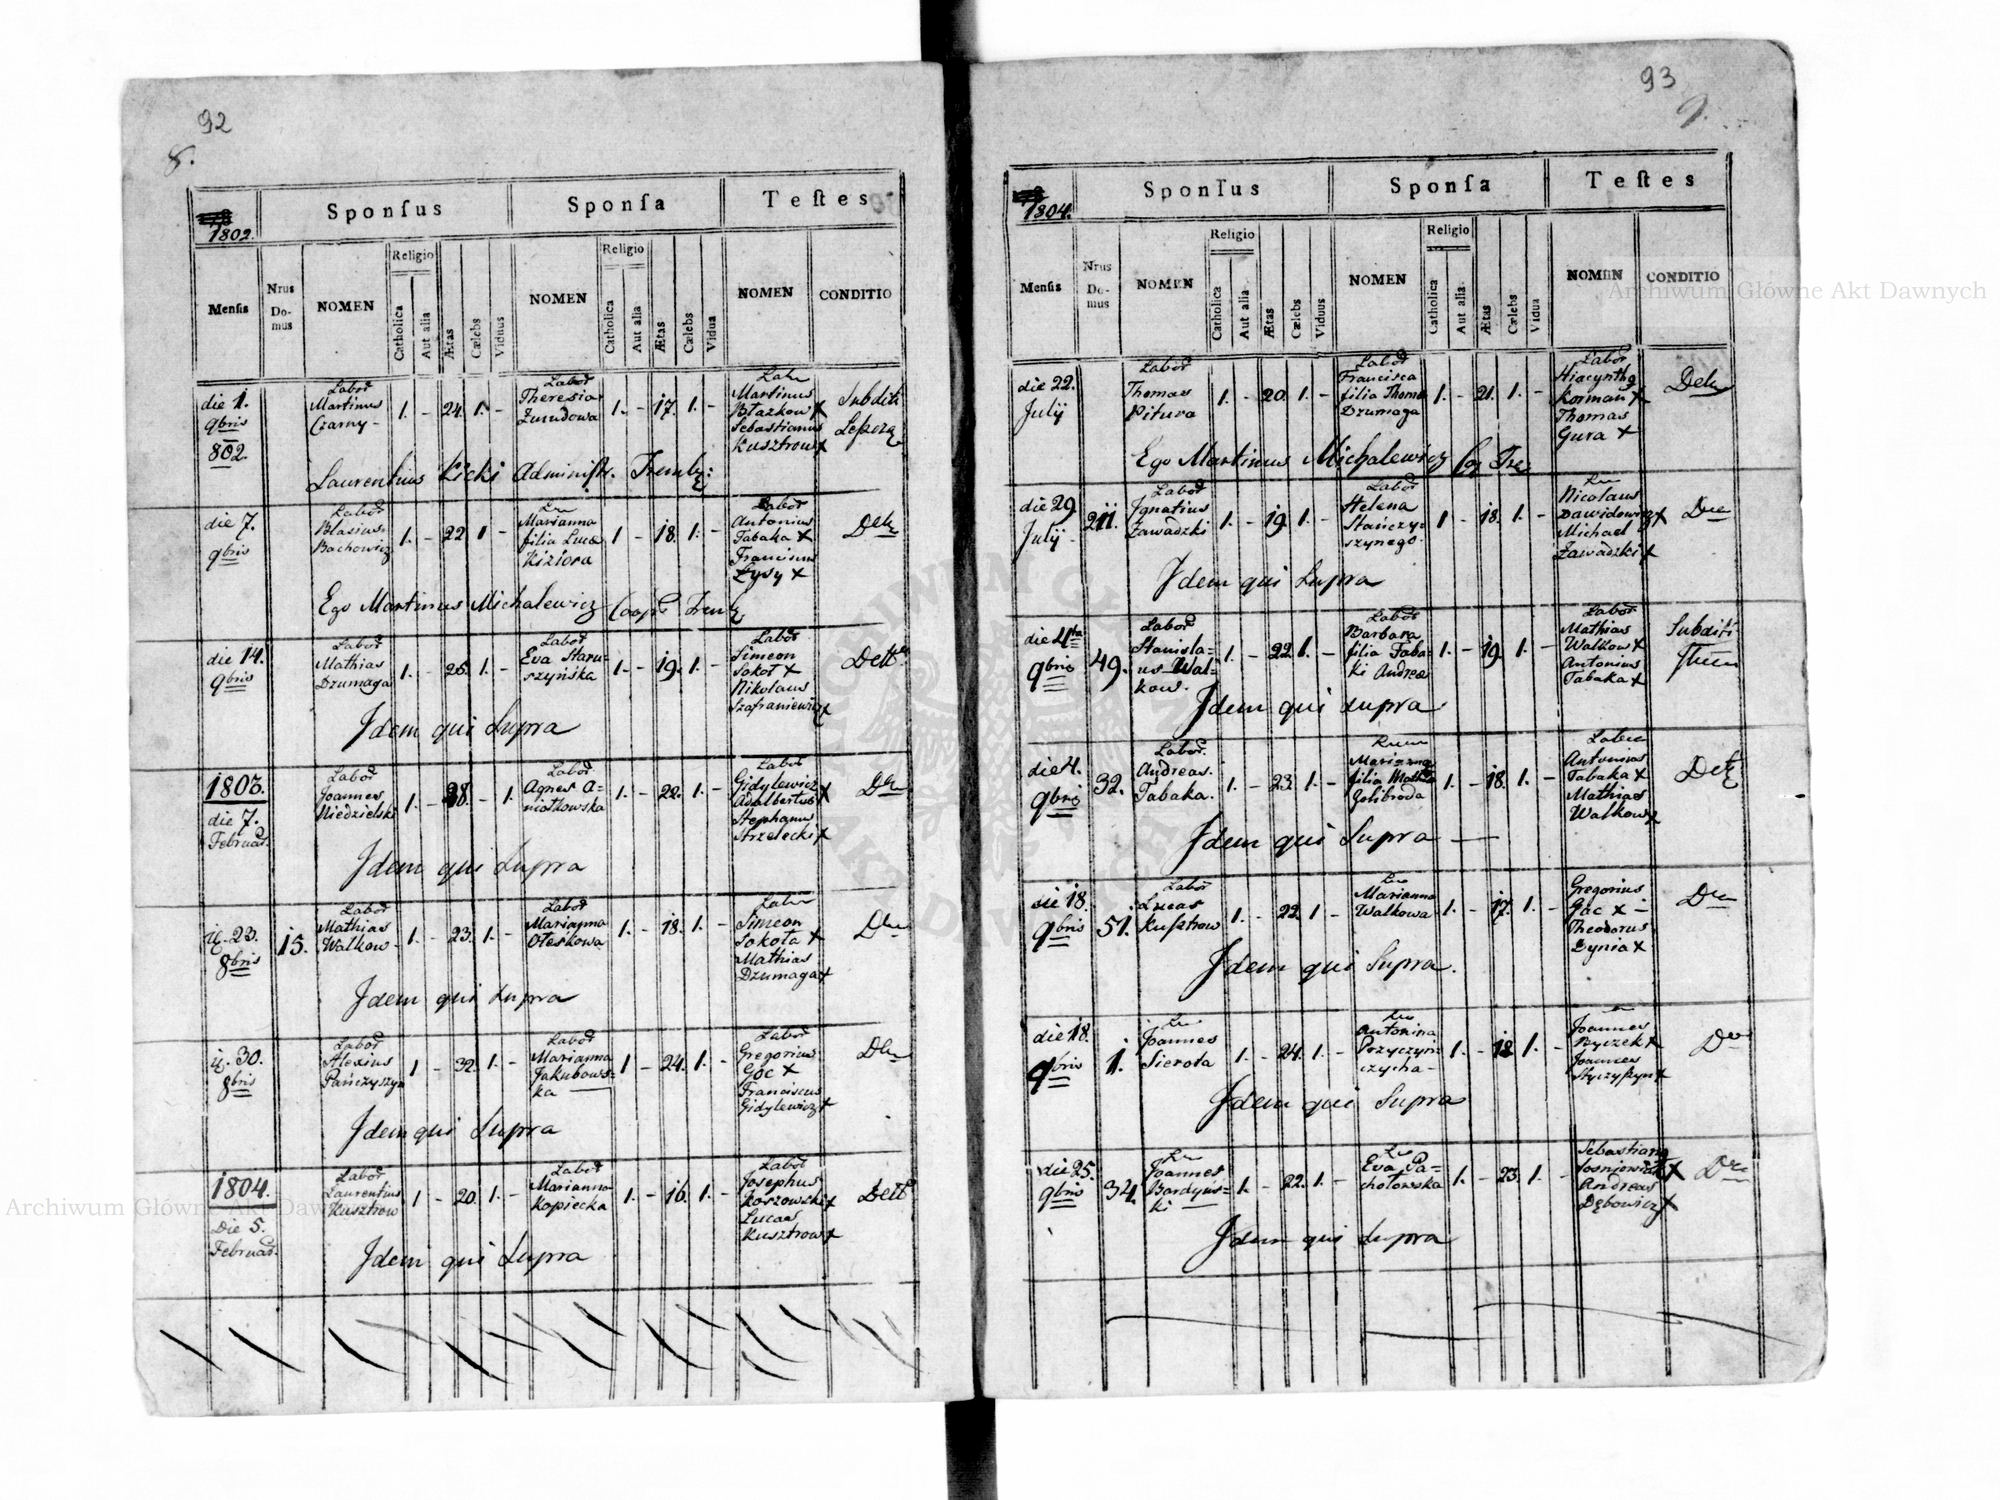 92
8.
Sponſus Sponſa Teſtes
1802.
Menſis Nrus Domus NOMEN Religio Catholica Aut alia Ætas Cælebs Viduus NOMEN Religio Catholica Aut alia Ætas Cælebs Vidua NOMEN CONDITIO
die 1. 9bris 802. Labor Martinus Czarny 1. - 24. 1. - Labor Theresia Zmudowa 1. - 17. 1. - Martinus Błazkow x Sebastianus Kusztrow x Subditi
Laurentius Kicki Administr.
die 7. 9bris Labor Blasius Bachowicz 1. - 22 1 - Marianna filia Luca Kiziora 1 - 18. 1. - Labor Antonius Tabaka x Franciscus Łysy x
Ego Martinus Michalewicz
die 14. 9bris Labor Mathias Dzumaga 1. - 26. 1. - Labor Eva Staruszyńska 1. - 19. 1. - Labor Simeon Sokoł x Nikolaus Szafraniewicz x
Idem qui Supra
1803. die 7. Februar. Labor Joannes Niedzielski 1. - 38. - 1. Labor Agnes Aniołkowska 1. - 22. 1. - Labor Gidylewicz Adalbertus x Stephanus Strzelecki x
Idem qui Supra
23. 8bris 15. Labor Mathias Walkow 1. - 23. 1. - Labor Marianna Oleskowa 1. - 18. 1. - Simeon Sokoła x Mathias Dzumaga x
Idem qui Supra
30. 8bris Labor Alexius Pańczyszyn 1 - 32. 1. - Labor Marianna Jakubowska 1 - 24. 1. - Labor Gregorius Goc x Franciscus Gidylewicz x
Idem qui Supra
1804. Die 5. Februar. Labor Laurentius Kusztrow 1 - 20. 1. - Labor Marianna Kopiecka 1. - 16. 1. - Labor Josephus Koszowski x Lucas Kusztrow x
Idem qui Supra
93
9.
Sponſus Sponſa Teſtes
1804.
Menſis Nrus Domus NOMEN Religio Catholica Aut alia Ætas Cælebs Viduus NOMEN Religio Catholica Aut alia Ætas Cælebs Vidua NOMEN CONDITIO
die 22. Julij Labor Thomas Pitura 1. - 20. 1. - Labor Francisca filia Thoma Dzumaga 1. - 21. 1. - Labor Korman x Thomas Gura x
Ego Martinus Michalewicz
die 29. Julij Labor Ignatius Zawadzki 1. - 19. 1. - Labor Helena Stańczyszynego 1 - 18. 1. - Nicolaus Dawidowicz x Michael Zawadzki x
Idem qui Supra
die 4ta 9bris 49. Labor Stanislaus Walkow. 1. - 22. 1. - Labor Barbara filia Tabaki Andrea 1. - 19. 1. - Labor Mathias Walkow x Antonius Tabaka x Subditi
Idem qui supra
die 4. 9bris 32. Labor. Andreas. Tabaka. 1. - 23. 1. - Marianna filia Golibroda 1. - 18. 1. - Antonius Tabaka x Mathias Walkow x
Idem qui Supra
die 18. 9bris 51. Labor Lucas Kusztrow 1. - 22. 1 - Marianna Walkowa 1. - 17. 1. - Gregorius Goc x Theodorus Dynia x
Idem qui Supra.
die 18. 9bris 1. Joannes Sierota 1. - 24. 1. - Antonina 1. - 18. 1. - Joannes Joannes
Idem qui Supra
die 25. 9bris 34. Joannes Bardyński 1. - 22. 1. - Eva Pachołowska 1. - 23. 1. - Andreas Dębowicz x
Idem qui Supra
Archiwum Główne Akt Dawnych
Archiwum Główne Akt Dawnych
ARCHIWUM GŁÓWNE AKT DAWNYCH